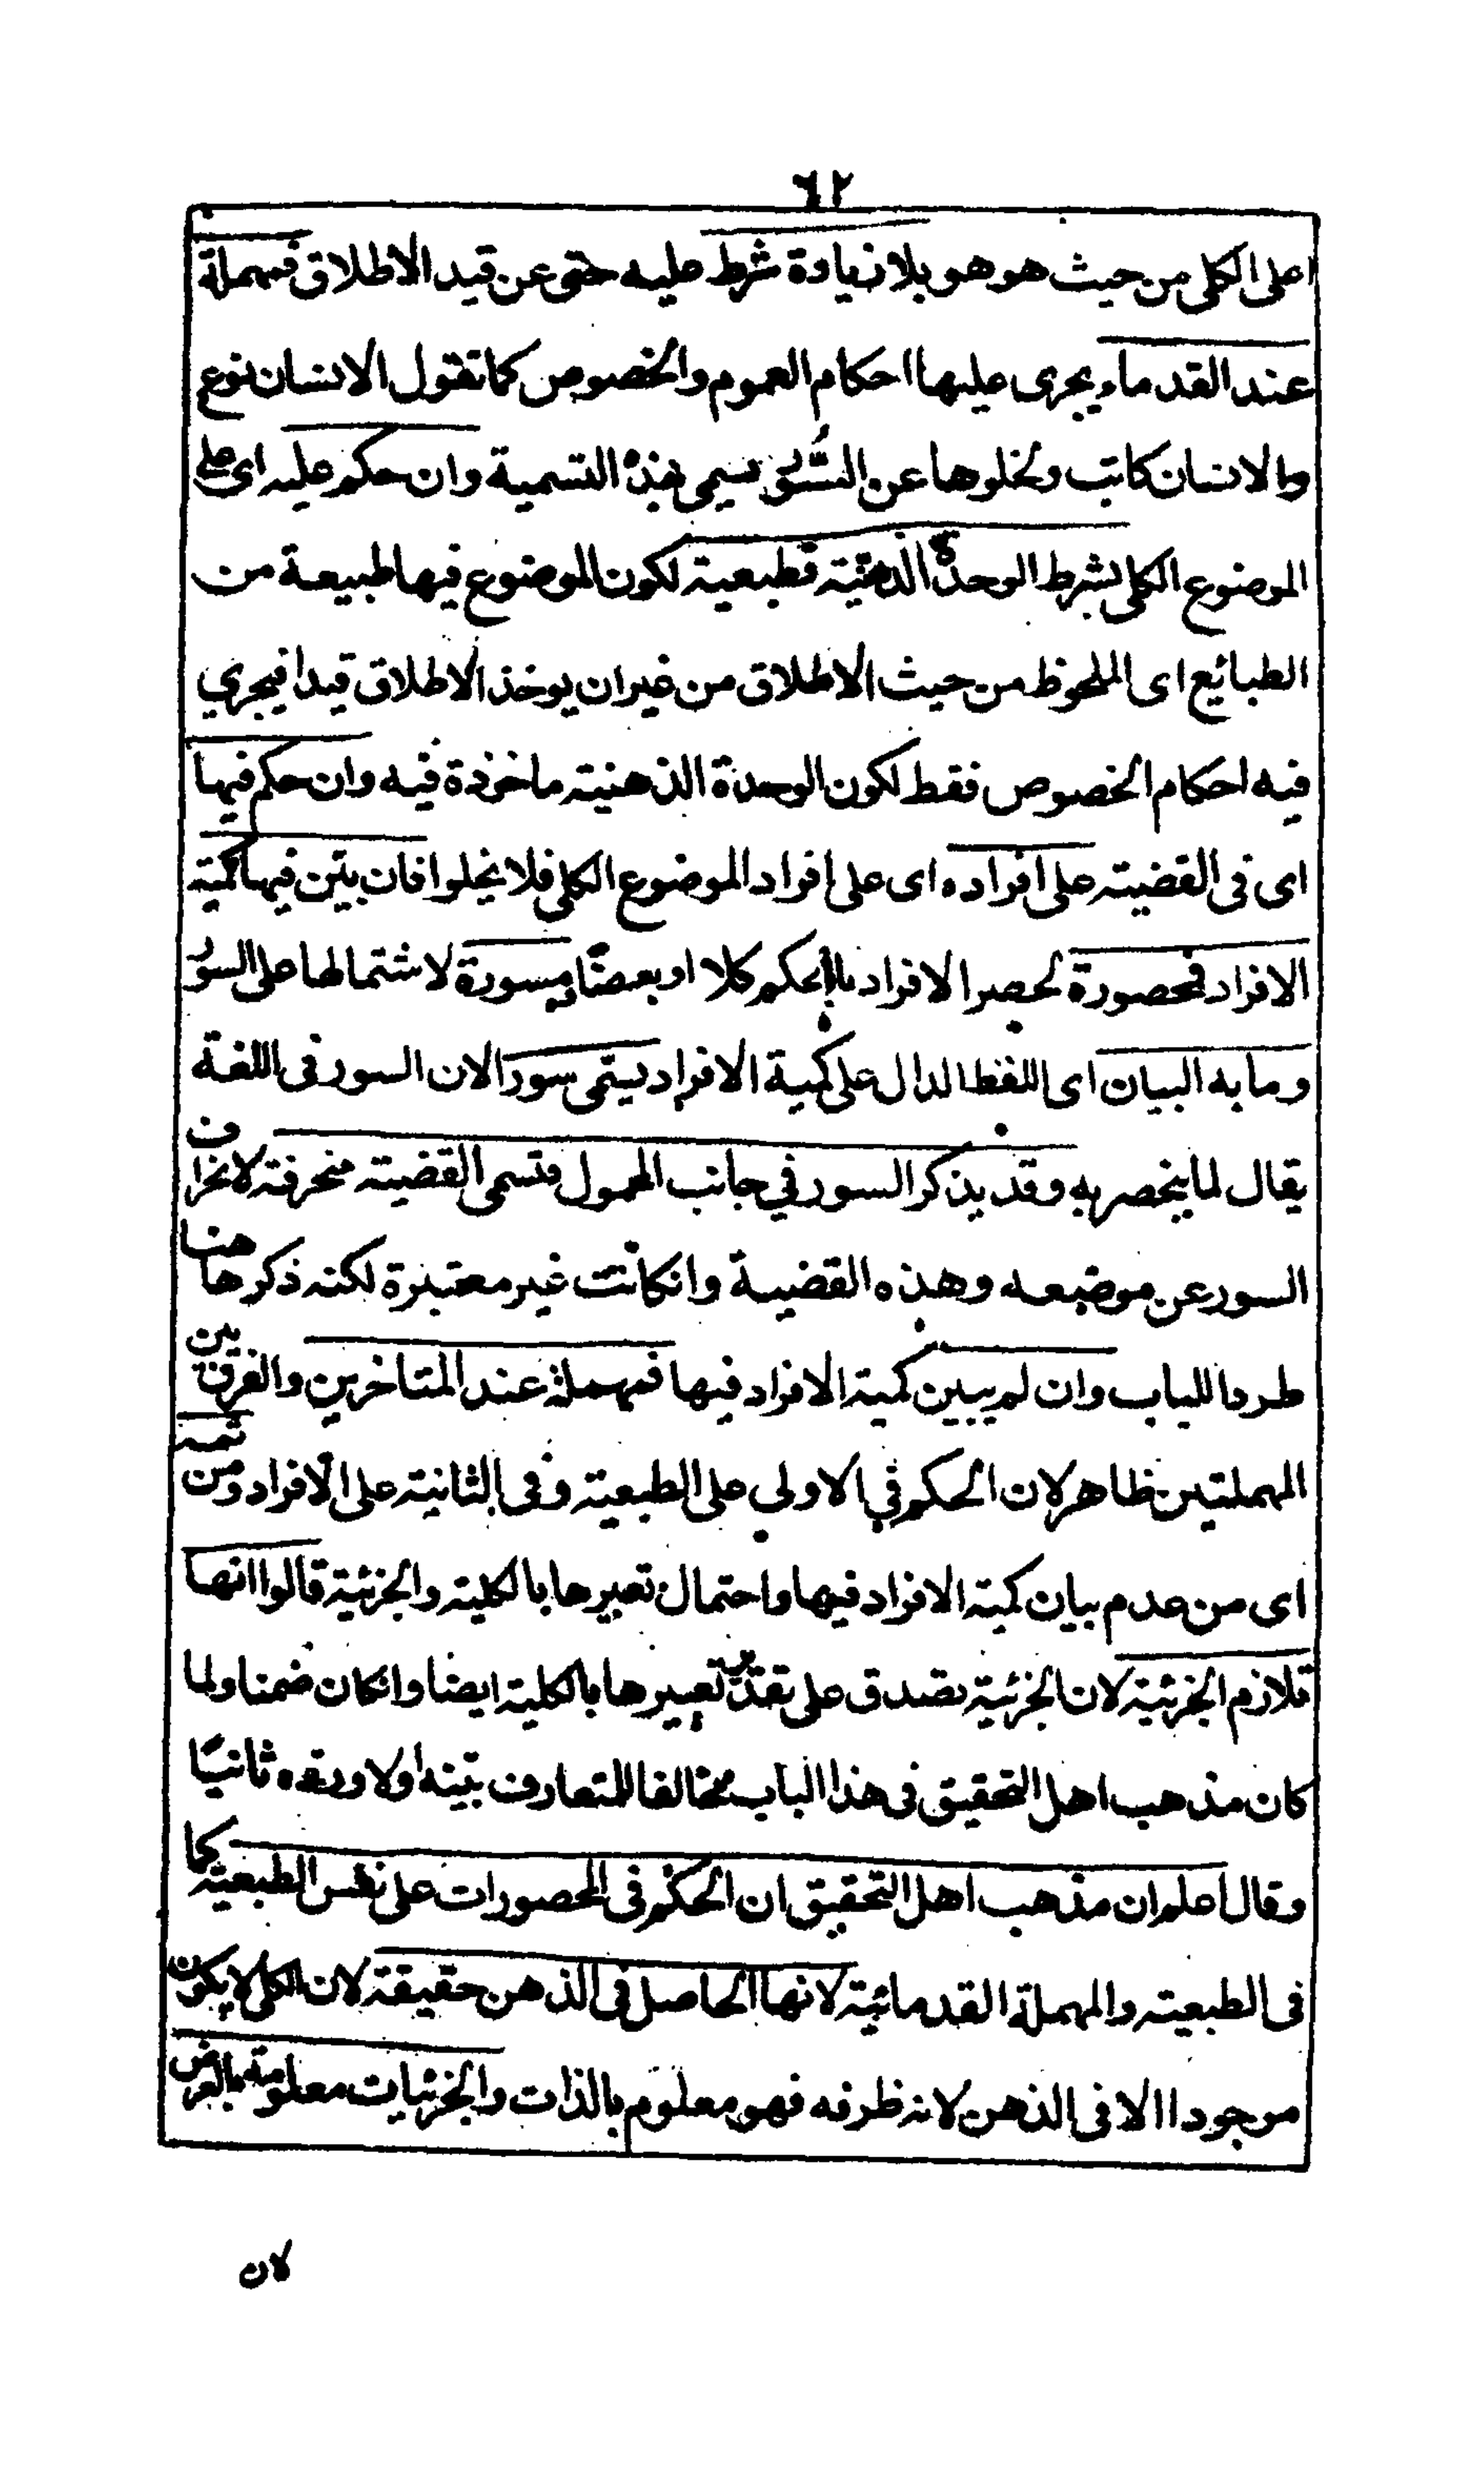 ٦٢
اعلى الكلي من حيث هو هو بلا زيادة شرط عليه حتى عن قيد الاطلاق فمهملة
عند القدماء يجرى عليها احكام العموم والخصوص كما تقول الانسان نوع
والانسان كاتب ولخلوها عن السور يسمى بهذه التسمية وان حكم عليه اى على
الموضوع الكلى بشرط الوحدة الذهنية فطبعية لكون الموضوع فيها طبيعة من
الطبائع اى الملحوظ من حيث الاطلاق من غير ان يوخذ الاطلاق قيدا فيجري
فيه احكام الخصوص فقط لكون الوحدة الذهنية ماخوذة فيه وان حكم فيها
اى فى القضية على افراده اى على افراد الموضوع الكلى فلا يخلوا فان بيّن فيها كمية
الافراد فمحصورة لحصر الافراد بالحكم كلا او بعضًا ومسورة لاشتمالها على السور
وما به البيان اى اللفظ الدال على كمية الافراد يسمّى سورا لان السور فى اللغة
يقال لما ينحصر به وقد يذكر السور في جانب المحمول فتسمى القضية منحرفة لانحراف
السور عن موضعه وهذه القضية وانكانت غير معتبرة لكنه ذكرها هنا
طردا للباب وان لم يبين كمية الافراد فيها فمهملة عند المتاخرين والفرق بين
المهملتين ظاهر لان الحكم في الاولي على الطبعية وفى الثانية على الافراد ومن ثمه
اى من عدم بيان كمية الافراد فيها واحتمال تعبيرها بالكلية والجزئية قالوا انها
تلازم الجزئية لان الجزئية تصدق على تقدير تعبيرها بالكلية ايضا وانكان ضمنا ولما
كان مذهب اهل التحقيق فى هذا الباب مخالفا للمتعارف بيّنه اولا ورده ثانيًا
وقال اعلم ان مذهب اهل التحقيق ان الحكم فى المحصورات على نفس الطبعية كما
فى الطبعية والمهملة القدمائية لانها الحاصل فى الذهن حقيقة لان الكلى لا يكون
موجودا الا فى الذهن لانه ظرفه فهو معلوم بالذات والجزئيات معلومة بالعرض
لان